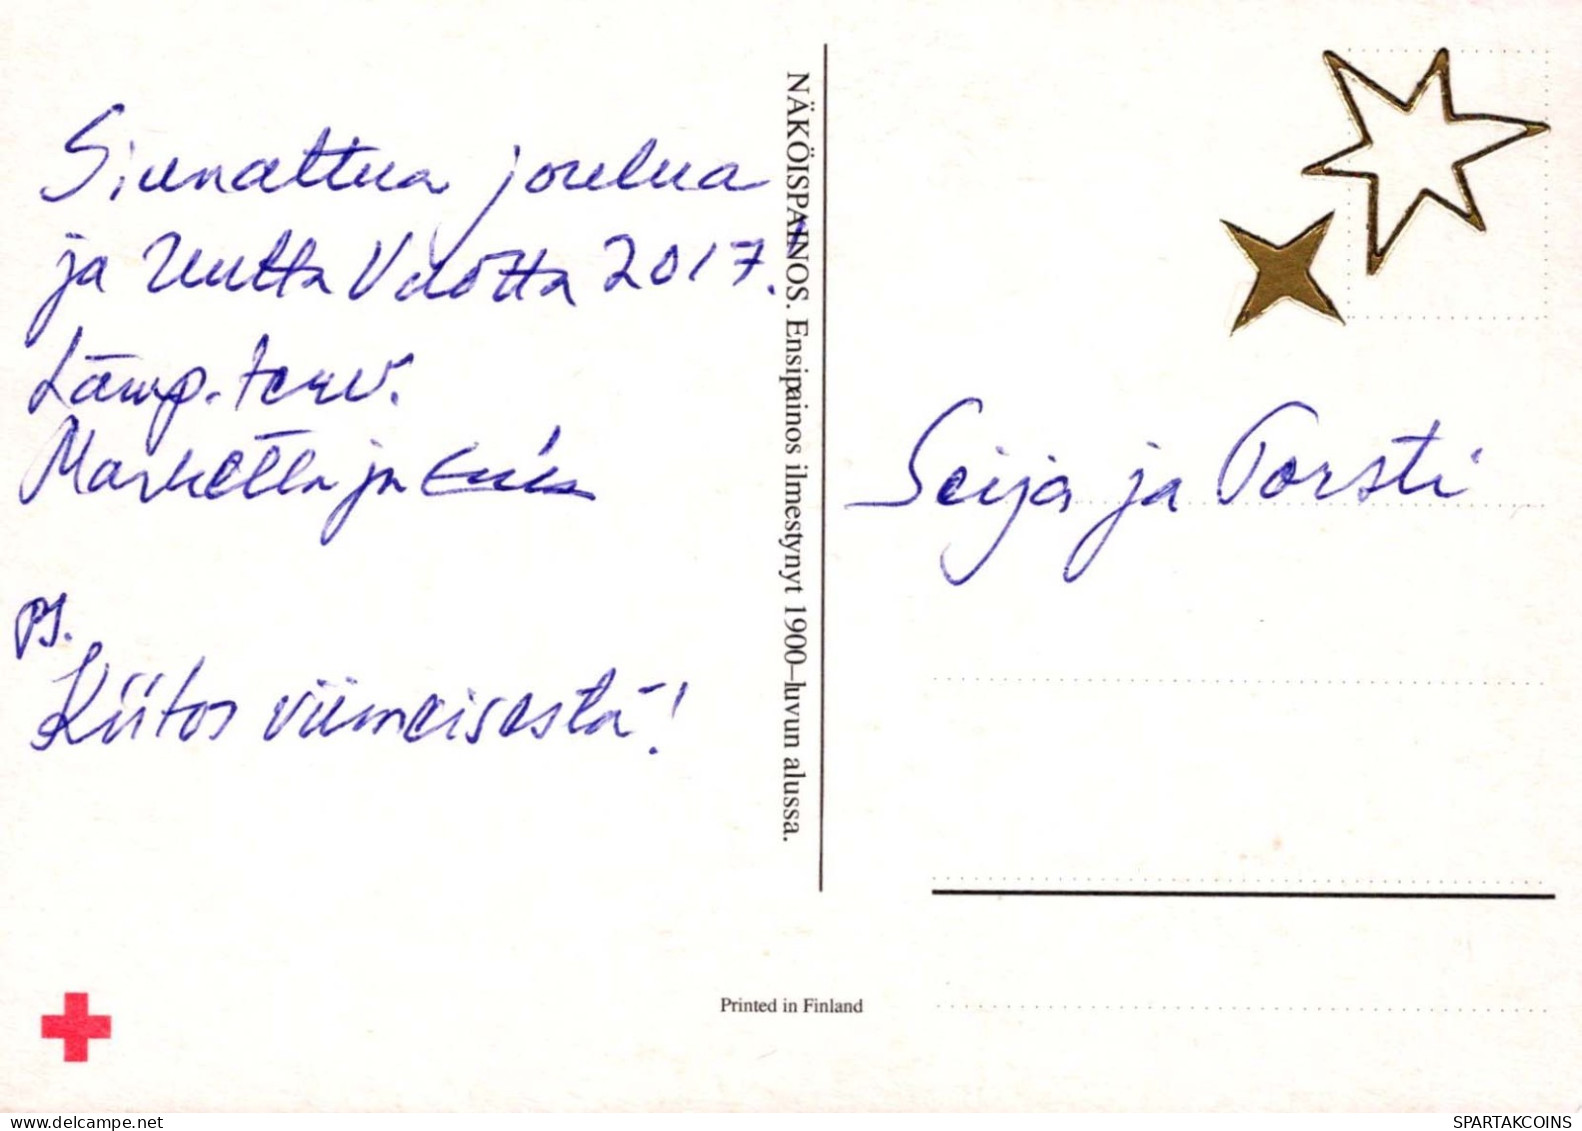 Siunattua joulua
ja Uutta Vuotta 2017.
Lämp. terv.
Marketta ja
ps.
Kiitos viimeisestä!
NÄKÖISPAINOS. Ensipainos ilmestynyt 1900–luvun alussa.
Seija ja Torsti
Printed in Finland
SPARTAKCOINS